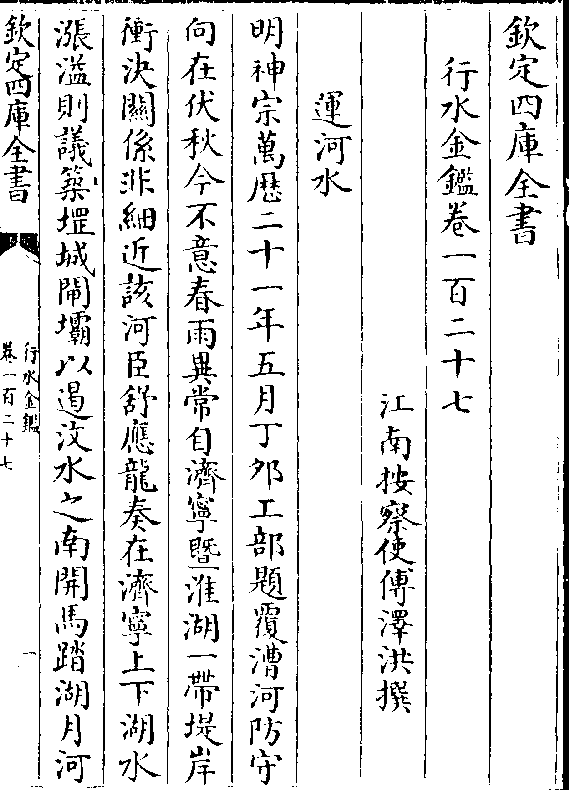 欽定四庫全書
行水金鑑卷一百二十七
江南按察使傅澤洪撰
運河水
明神宗萬歷二十一年五月丁卯工部題覆漕河防守
向在伏秋今不意春雨異常自濟寧暨淮湖一帶堤岸
衝決關係非細近該河臣舒應龍奏在濟寧上下湖水
漲溢則議築堽城閘壩以遏汶水之南開馬踏湖月河
欽定四庫全書
行水金鑑
卷一百二十七
一